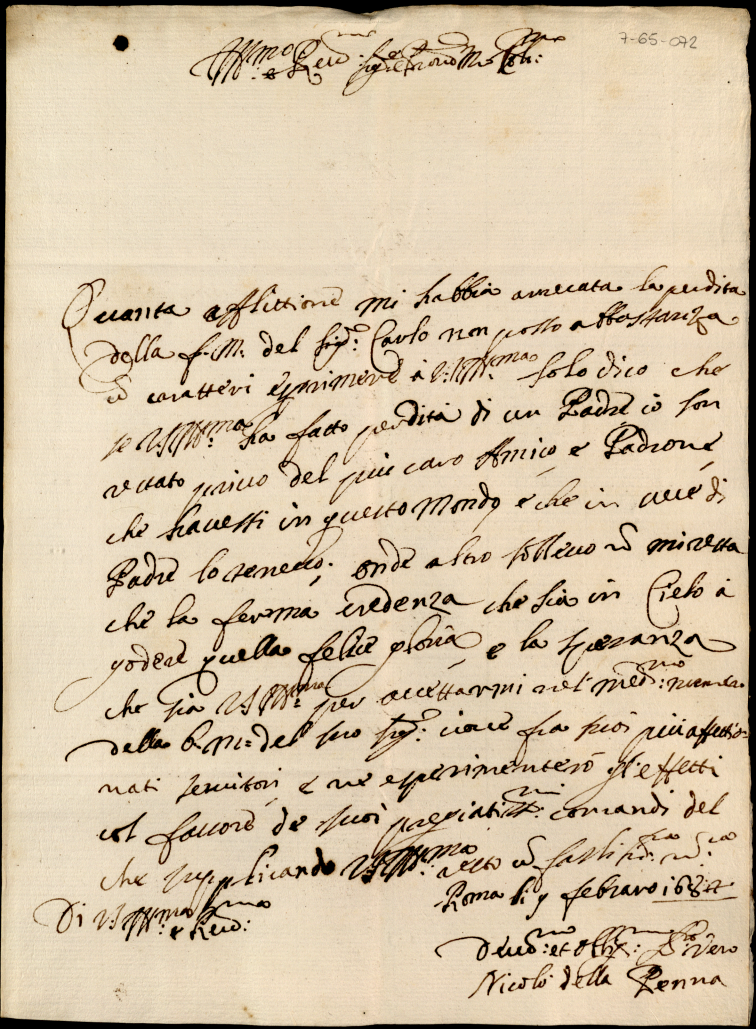 7-65-072
Ill.mo e Rev.mo Sig.re Padrone Col.mo
Quanta afflittione mi habbia arrecata la perdita
della f: M: del Sig.r Carlo non posso a bastanza
caratteri esprimere à V.S. Ill.ma solo dico che
se V.S. Ill.ma ha fatto perdita di un Padre io son
restato privo del piu caro Amico e Padrone
che havessi in questo Mondo e che in vece di
Padre lo tenevo, onde altro sollievo mi resta
che la ferma credenza che sia in Cielo à
godere quella felice gloria, e la speranza
che sia V.S. Ill.ma per accettarmi nel med.mo numero
della b: M: del suo Sig.r cioè fra suoi più affettio
nati servitori, e ne esperimenterò gl'effetti
col favore de suoi pregiatis.mi comandi del
che supplicando V.S. Ill.ma resto
Roma li 9 febraro
Di V.S. Ill.ma e Rev.ma
Devo.mo et Obl.mo vero
Nicolò della Penna